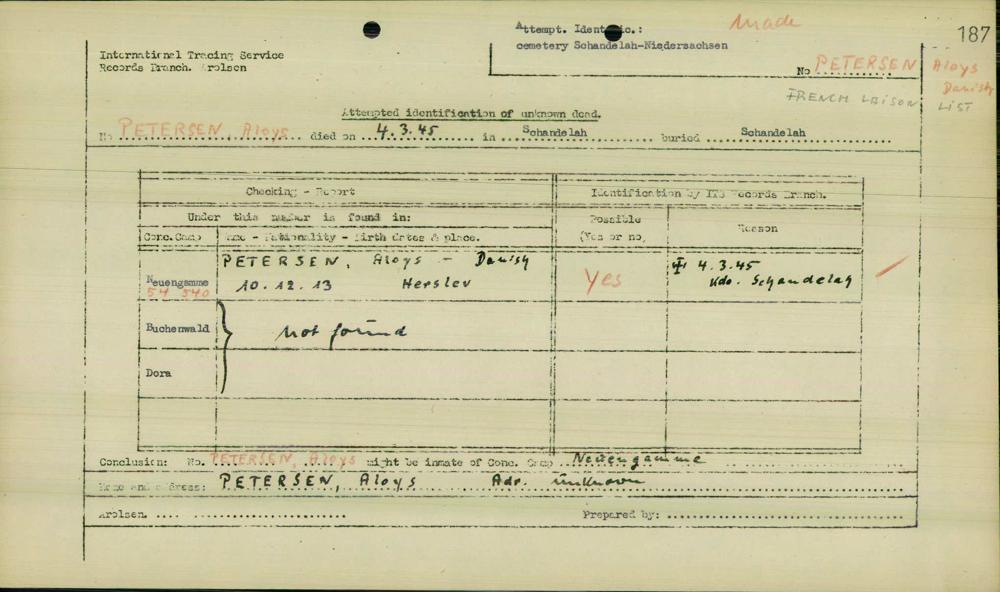 Attempt. Identific.: Made
187
cemetery Schandelah-Niedersachsen
International Tracing Service
Records Branch. Arolsen
No PETERSEN Aloys
Danish
FRENCH LAISON LIST
Attempted identification of unknown dead.
No PETERSEN, Aloys died on 4.3.45 in Schandelah buried Schandelah
Checking - Report Identification by ITS Records Branch.
Under this number is found in: Possible (Yes or no) Reason
Conc.Camp Name - Nationality - Birth dates & place.
PETERSEN, Aloys - Danish
Neuengamme 10.12.13 Herslev Yes † 4.3.45
54 540 Kdo. Schandelah
Buchenwald Not found
Dora
Conclusion: No. PETERSEN, Aloys might be inmate of Conc. Camp Neuengamme
Name and address: PETERSEN, Aloys Adr. unknown
Arolsen. Prepared by: